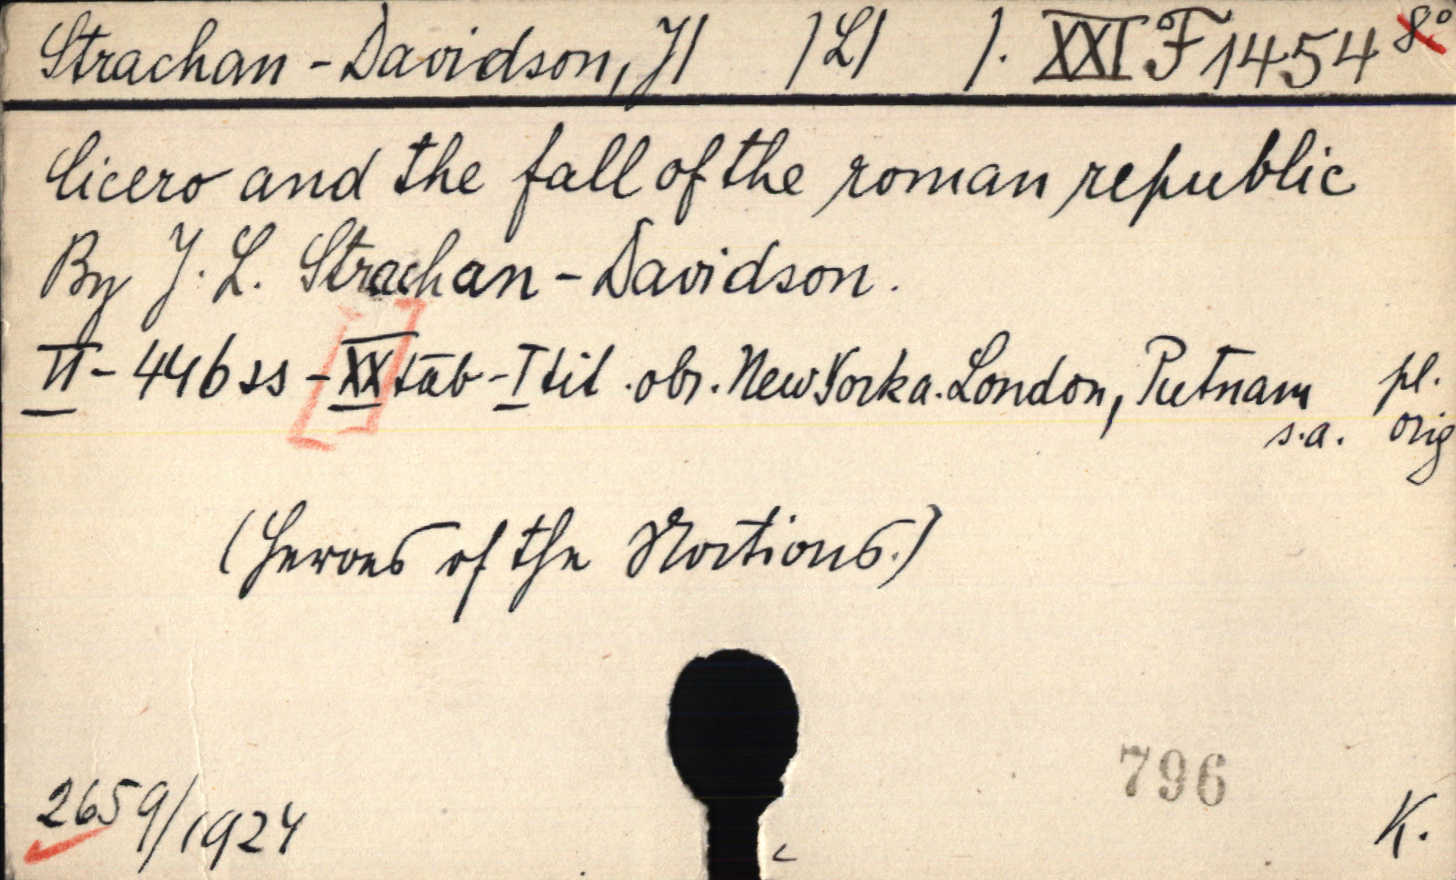 Strachan-Davidson, J/ /L/ /. XXI F 1454 8°
Cicero and the fall of the roman republic
By J. L. Strachan-Davidson.
II - 446 ss - [XX tab] - I tit. obr. New York a. London, Putnam pl.
s.a. orig
(Heroes of the Nations.)
2659/1924
796
K.